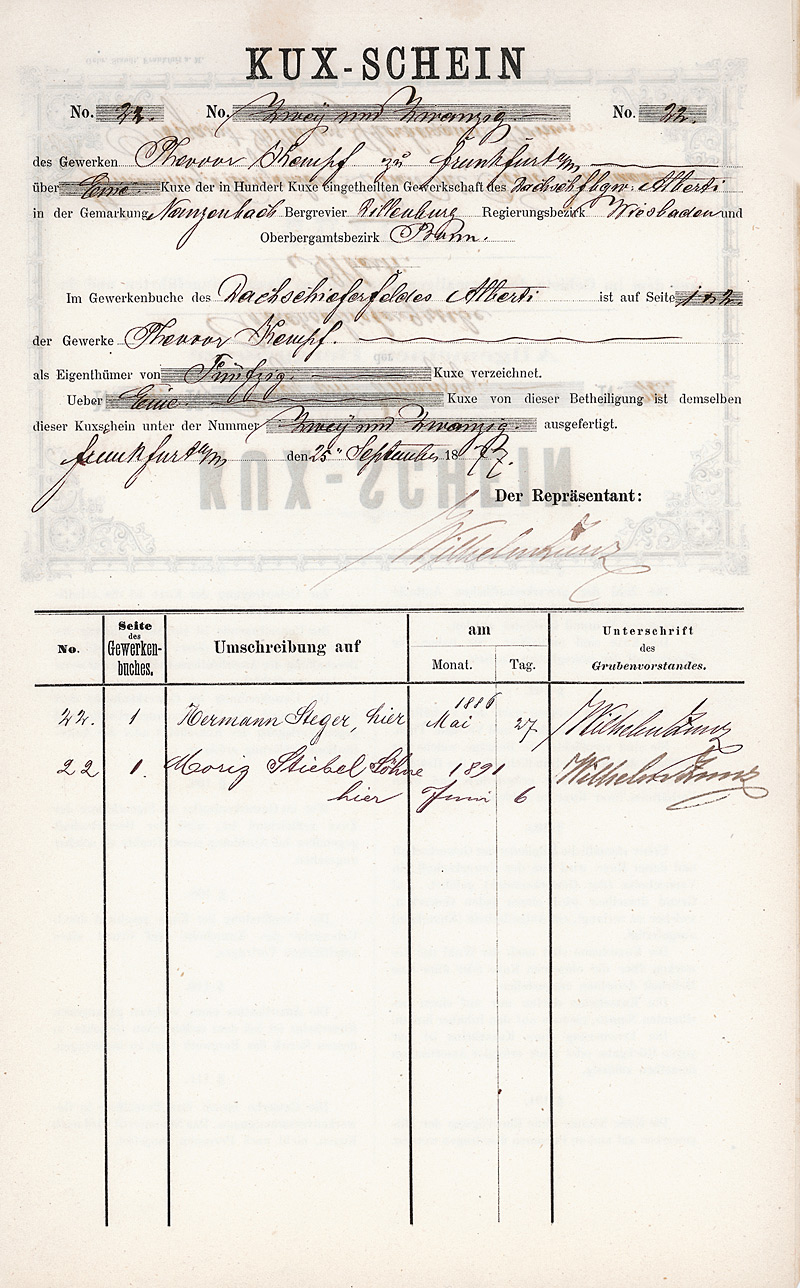 KUX-SCHEIN
No. 22. No. Zwey und Zwanzig. No. 22.
des Gewerken Theodor Kempf zu Frankfurt a/m
über Eine Kuxe der in Hundert Kuxe eingetheilten Gewerkschaft des Dachschfbgw: Alberti
in der Gemarkung Nanzenbach Bergrevier Dillenburg Regierungsbezirk Wiesbaden und
Oberbergamtsbezirk Bonn.
Im Gewerkenbuche des Dachschieferfeldes Alberti ist auf Seite 1 & 2.
der Gewerke Theodor Kempf.
als Eigenthümer von Fünfzig Kuxe verzeichnet.
Ueber Eine Kuxe von dieser Betheiligung ist demselben
dieser Kuxschein unter der Nummer Zwey und Zwanzig. ausgefertigt.
Frankfurt a/m den 25" September 1877.
Der Repräsentant:
Wilhelm Kunz
No. Seite des Gewerken-buches. Umschreibung auf am Monat. Tag. Unterschrift des Grubenvorstandes.
22. 1 Hermann Steger, hier 1886 Mai 27 Wilhelm Kunz
22 1. Moriz Stiebel Söhne 1891 Wilhelm Kunz
hier Juni 6